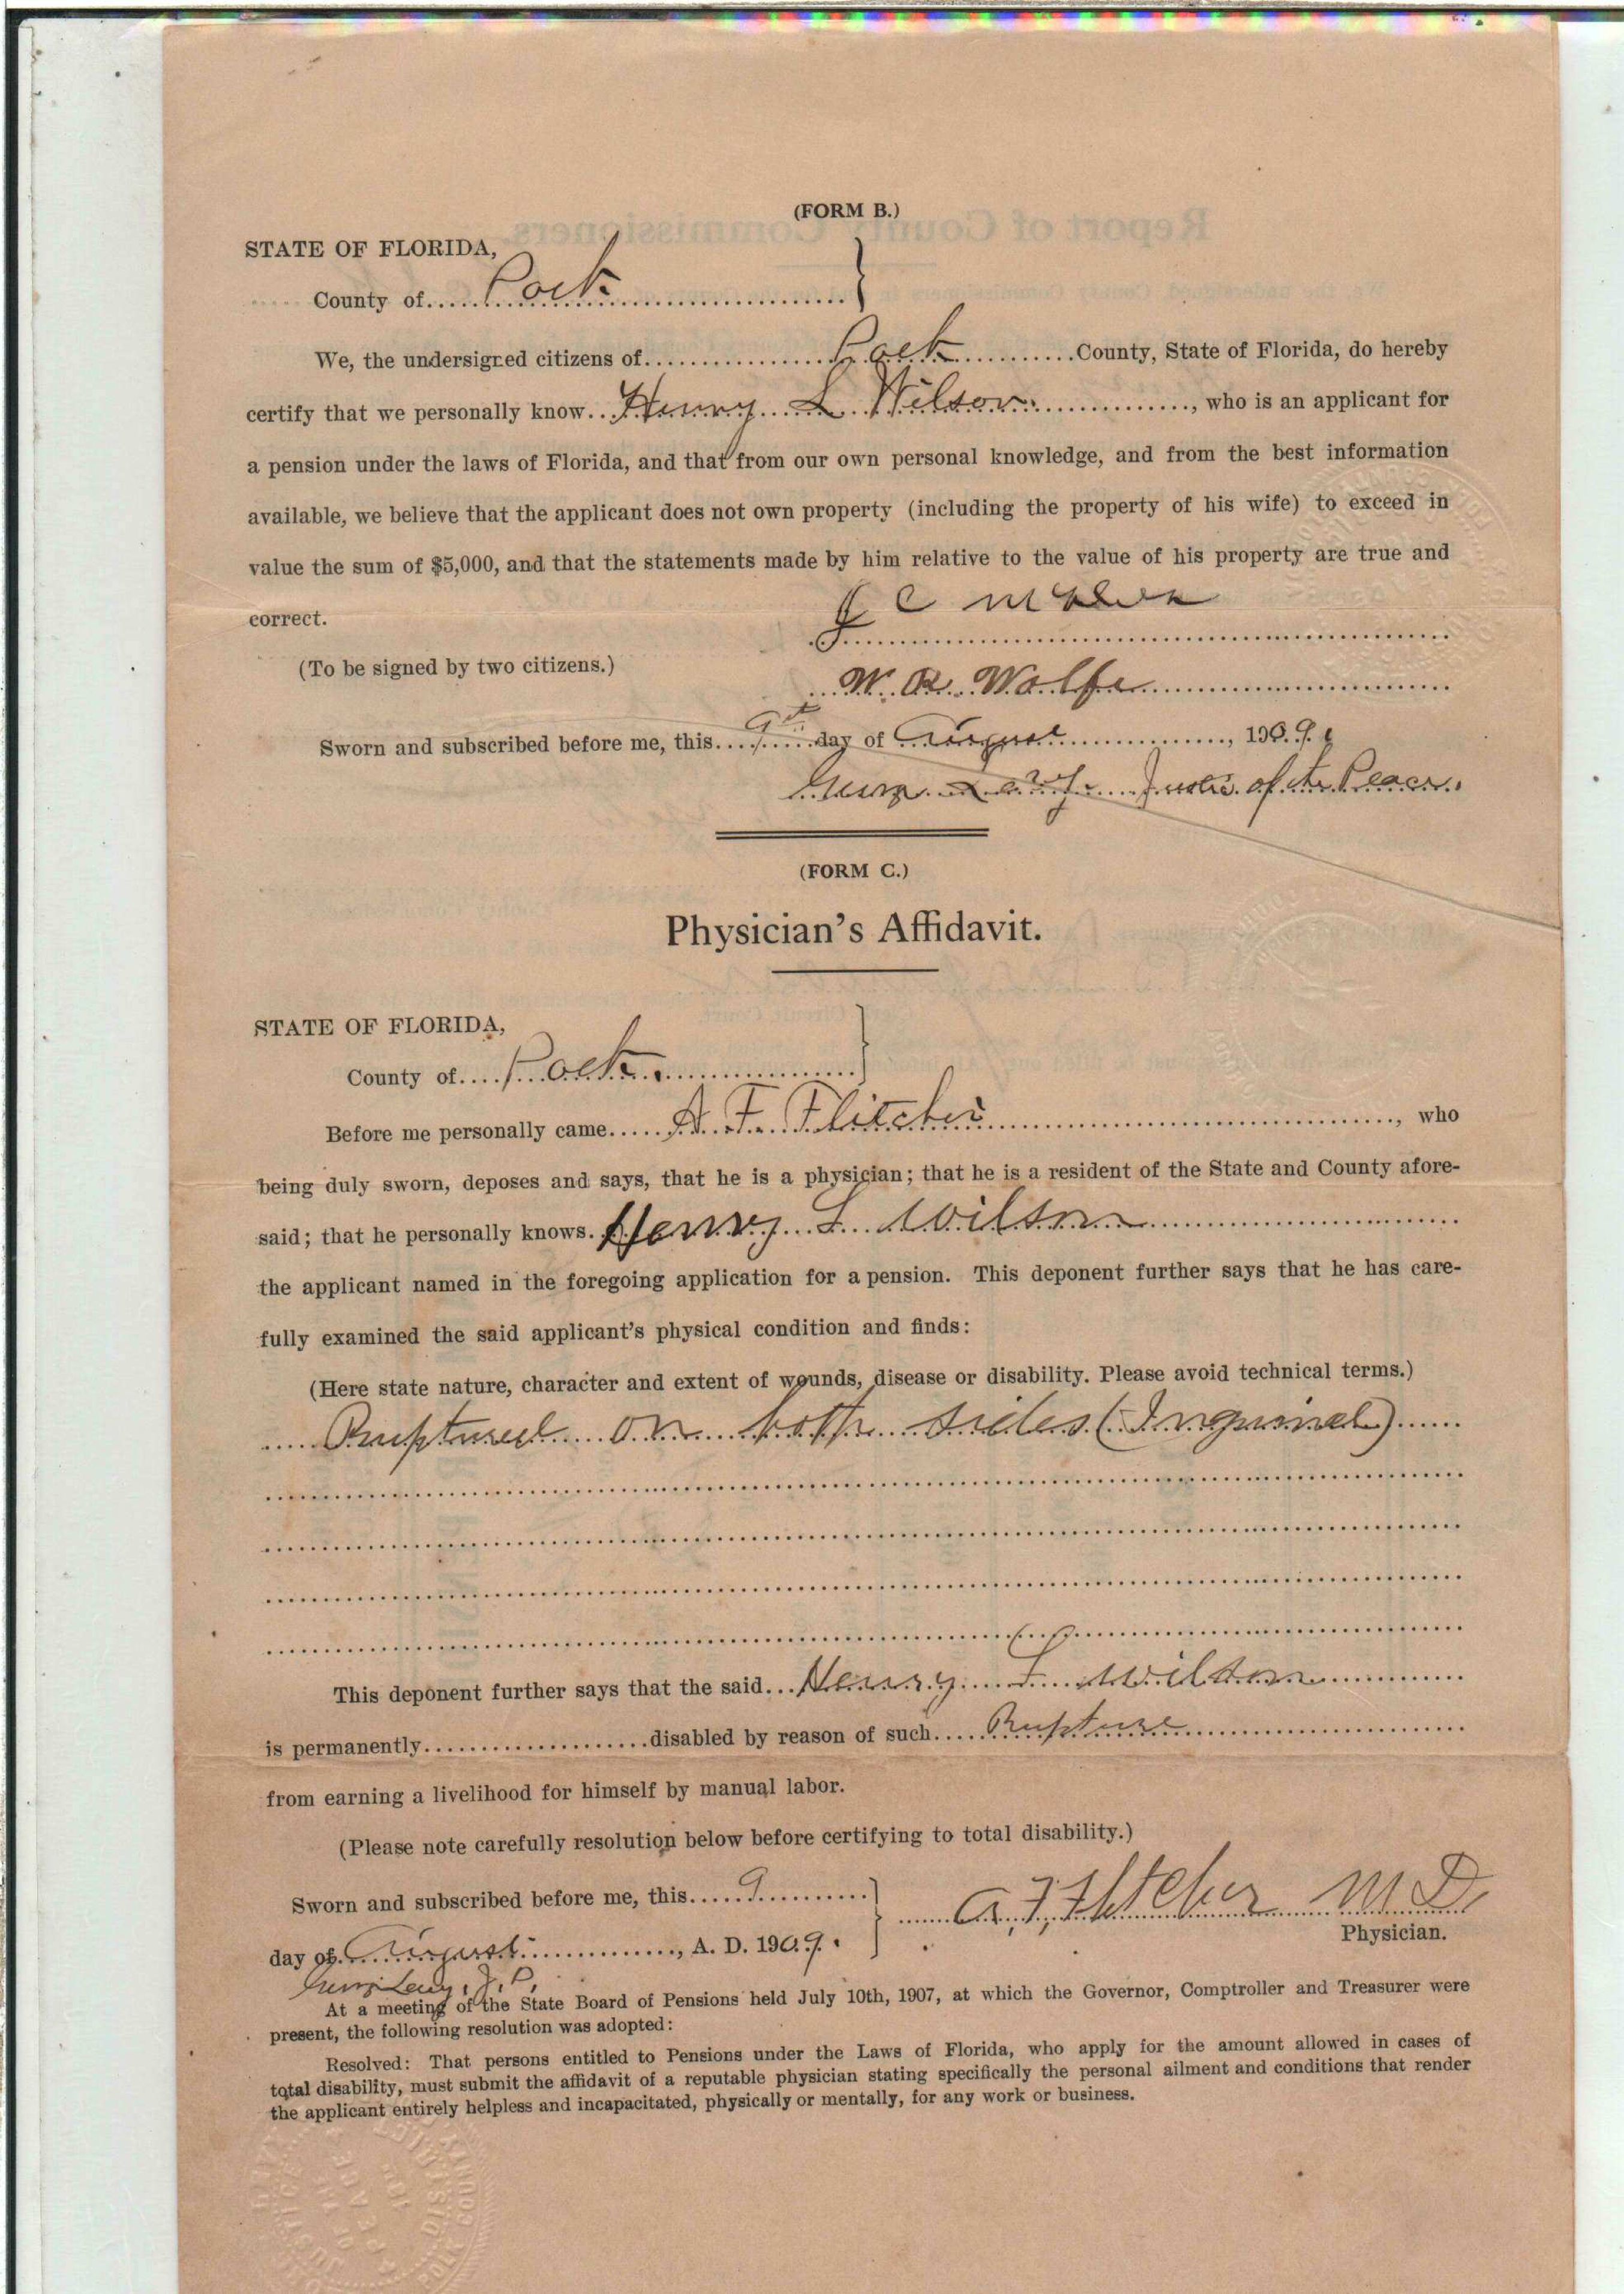 (FORM B.)
STATE OF FLORIDA,
County of Polk
We, the undersigned citizens of Polk County, State of Florida, do hereby
certify that we personally know Henry L Wilson, who is an applicant for
a pension under the laws of Florida, and that from our own personal knowledge, and from the best information
available, we believe that the applicant does not own property (including the property of his wife) to exceed in
value the sum of $5,000, and that the statements made by him relative to the value of his property are true and
correct.
J C
(To be signed by two citizens.)
W. R. Wolfe
Sworn and subscribed before me, this 9th day of August, 1909.
Levy Justice of the Peace.
(FORM C.)
Physician's Affidavit.
STATE OF FLORIDA,
County of Polk.
Before me personally came A. F. Flitcher, who
being duly sworn, deposes and says, that he is a physician; that he is a resident of the State and County afore-
said; that he personally knows Henry L Wilson
the applicant named in the foregoing application for a pension. This deponent further says that he has care-
fully examined the said applicant's physical condition and finds:
(Here state nature, character and extent of wounds, disease or disability. Please avoid technical terms.)
Ruptured on both sides (Inguinal)
This deponent further says that the said Henry L Wilson
is permanently disabled by reason of such Rupture
from earning a livelihood for himself by manual labor.
(Please note carefully resolution below before certifying to total disability.)
Sworn and subscribed before me, this 9
A. F. Flitcher M D.
Physician.
day of August, A. D. 1909.
Levy, J. P.
At a meeting of the State Board of Pensions held July 10th, 1907, at which the Governor, Comptroller and Treasurer were
present, the following resolution was adopted:
Resolved: That persons entitled to Pensions under the Laws of Florida, who apply for the amount allowed in cases of
total disability, must submit the affidavit of a reputable physician stating specifically the personal ailment and conditions that render
the applicant entirely helpless and incapacitated, physically or mentally, for any work or business.